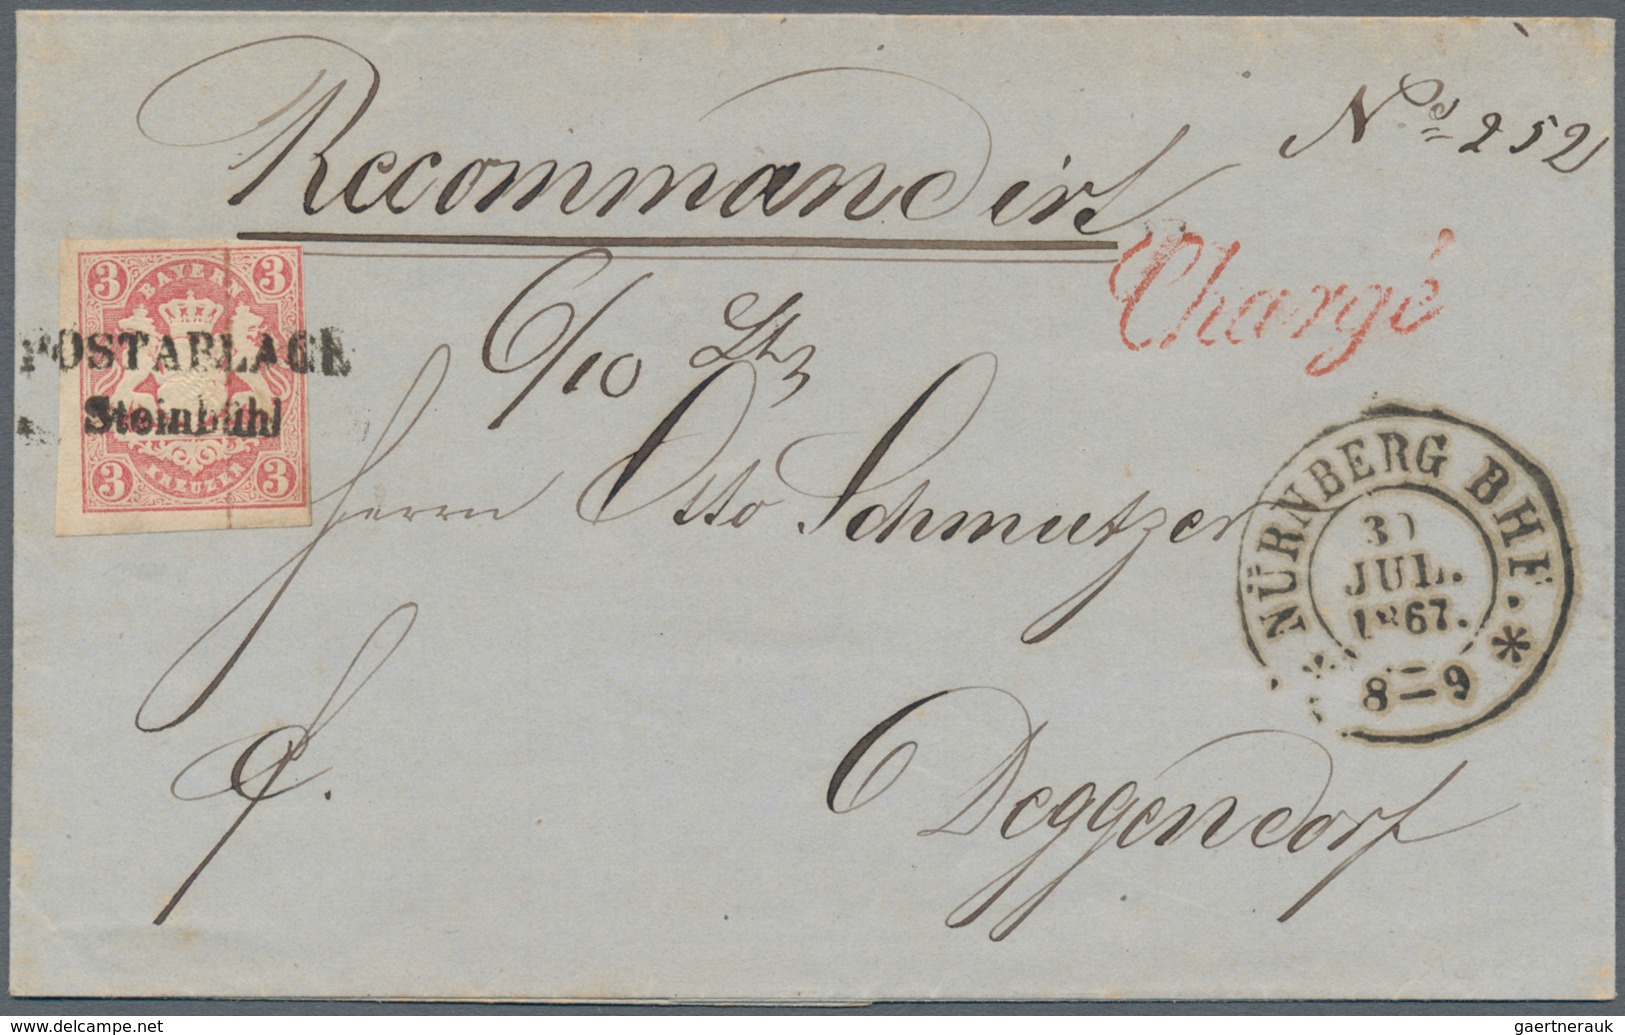 Recommandirt
No. 252
Chargé
3 BAYERN 3
POSTABLAGE
Steinbühl
3 KREUZER 3
6/10 Lth
Herrn Otto Schmutzer
NÜRNBERG BHF.
30
JUL.
1867.
8-9
Deggendorf
www.delcampe.net
gaertnerauk